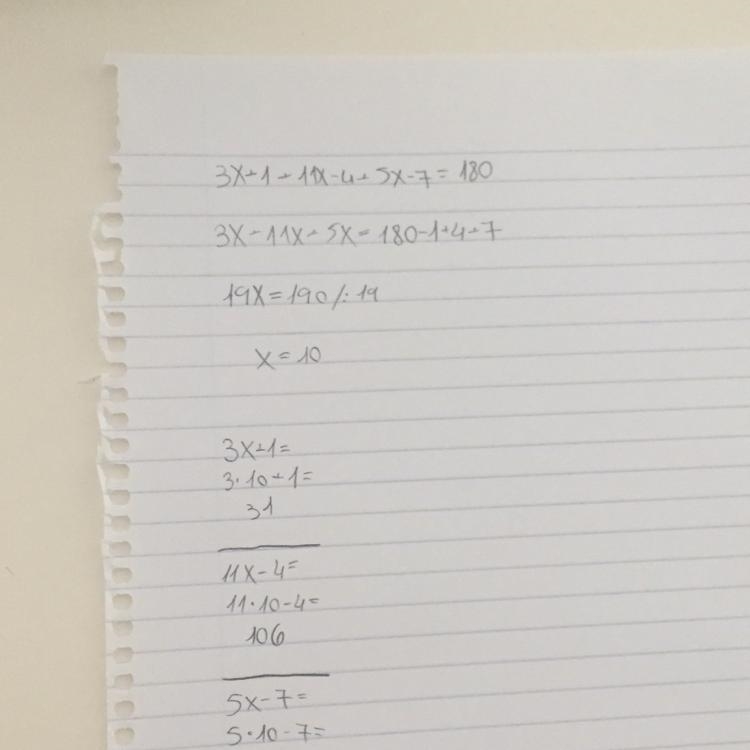 3x+1+11x-4+5x-7=180
3x+11x+5x=180-1+4+7
19x=190/:19
x=10
3x+1=
3·10+1=
31
11x-4=
11·10-4=
106
5x-7=
5·10-7=